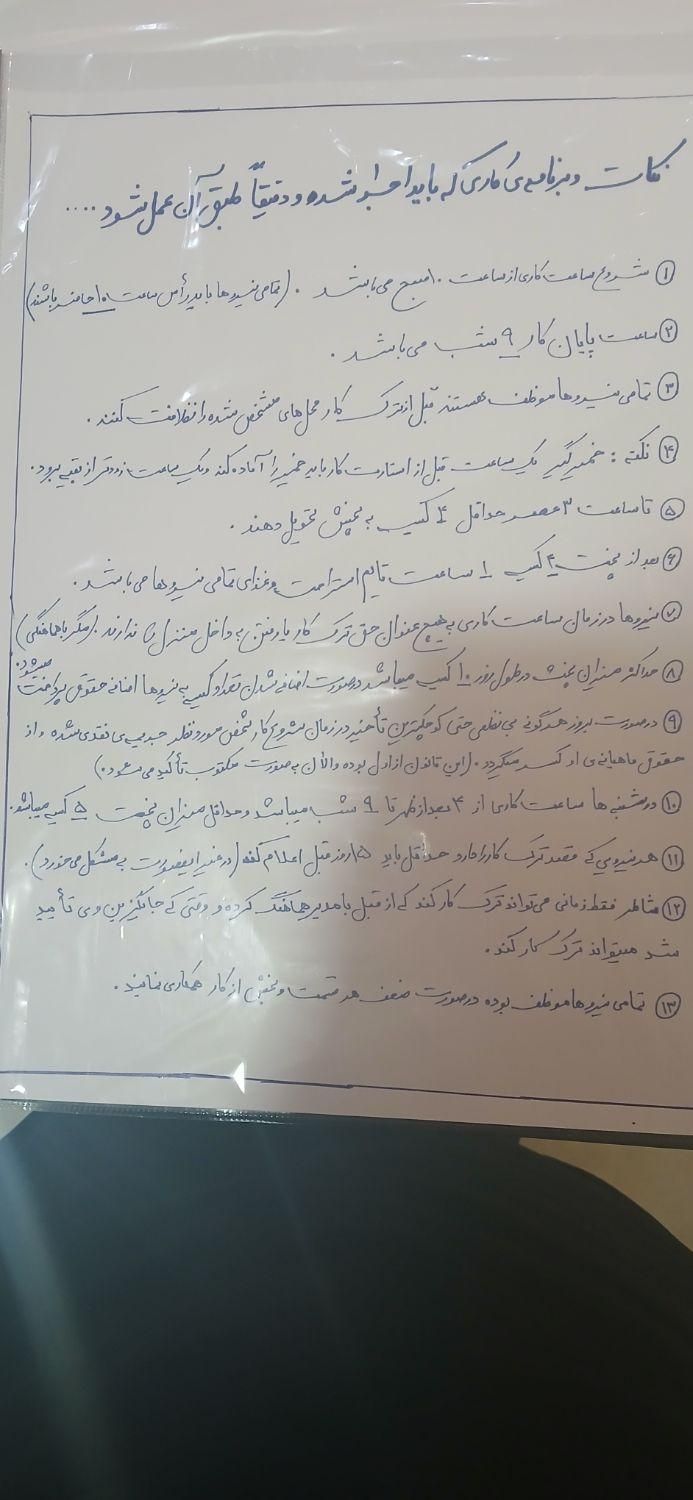 نکات و برنامه‌ی کاری که باید اجرا شده و دقیقاً طبق آن عمل شود ....
① شروع ساعت کاری از ساعت ۱۰ صبح می باشد . (تمامی نیروها باید رأس ساعت ۱۰ حاضر باشند)
② ساعت پایان کار ۹ شب می باشد .
③ تمامی نیروها موظف هستند قبل از ترک کار محل های مشخص شده را نظافت کنند .
④ نکته : خمیرگیر یک ساعت قبل از استارت کار باید خمیر را آماده کند و یک ساعت زودتر از بقیه برود .
⑤ تا ساعت ۳ عصر حداقل ۴ کیسه به پخش تحویل دهند .
⑥ بعد از پخت ۴ کیسه ۱ ساعت تایم استراحت و غذای تمامی نیروها می باشد .
⑦ نیروها در زمان ساعت کاری به هیچ عنوان حق ترک کار یا رفتن به داخل منزل را ندارند . (مگر با هماهنگی)
⑧ حداکثر میزان پخت در طول روز ۱۰ کیسه میباشد در صورت اضافه شدن تعداد کیسه به نیروها اضافه حقوق پرداخت میشود .
⑨ در صورت بروز هرگونه بی نظمی حتی کوچکترین تأخیر در زمان شروع کار شخص مورد نظر جریمه ی نقدی شده و از
حقوق ماهیانه ی او کسر میگردد . (این قانون از اول بوده و الان به صورت مکتوب تأکید می شود .)
⑩ در شنبه ها ساعت کاری از ۴ بعد از ظهر تا ۹ شب میباشد و حداقل میزان پخت ۵ کیسه میباشد .
⑪ هر نیرویی که قصد ترک کار را دارد حداقل باید ۱۵ روز قبل اعلام کند (در غیر اینصورت به مشکل می خورد) .
⑫ شاطر فقط زمانی می تواند ترک کار کند که از قبل با مدیر هماهنگ کرده و وقتی که جایگزین وی تأیید
شد میتواند ترک کار کند .
⑬ تمامی نیروها موظف بوده در صورت ضعف هر قسمت و بخش از کار همکاری نمایند .